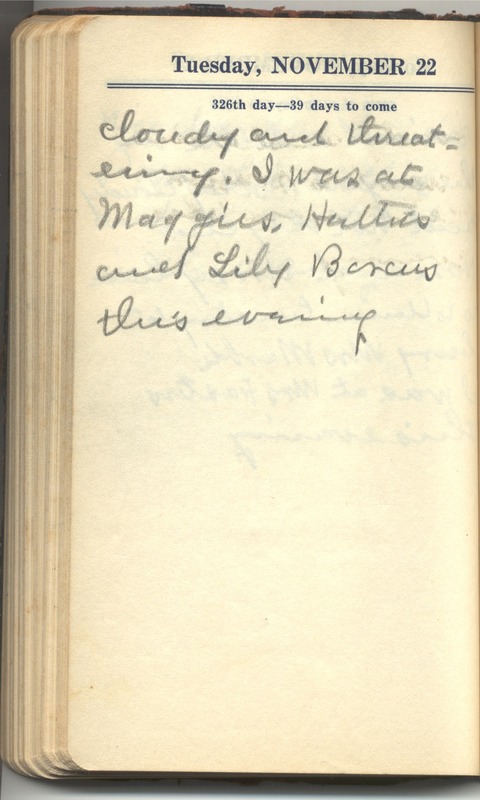 Tuesday, NOVEMBER 22
326th day—39 days to come
cloudy and threat-
ening. I was at
Maggies, Hatties
and Lily Borcus
this evening